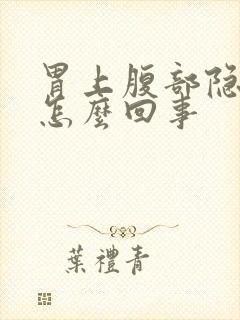 胃上腹部隐
怎麼回事
葉禮青